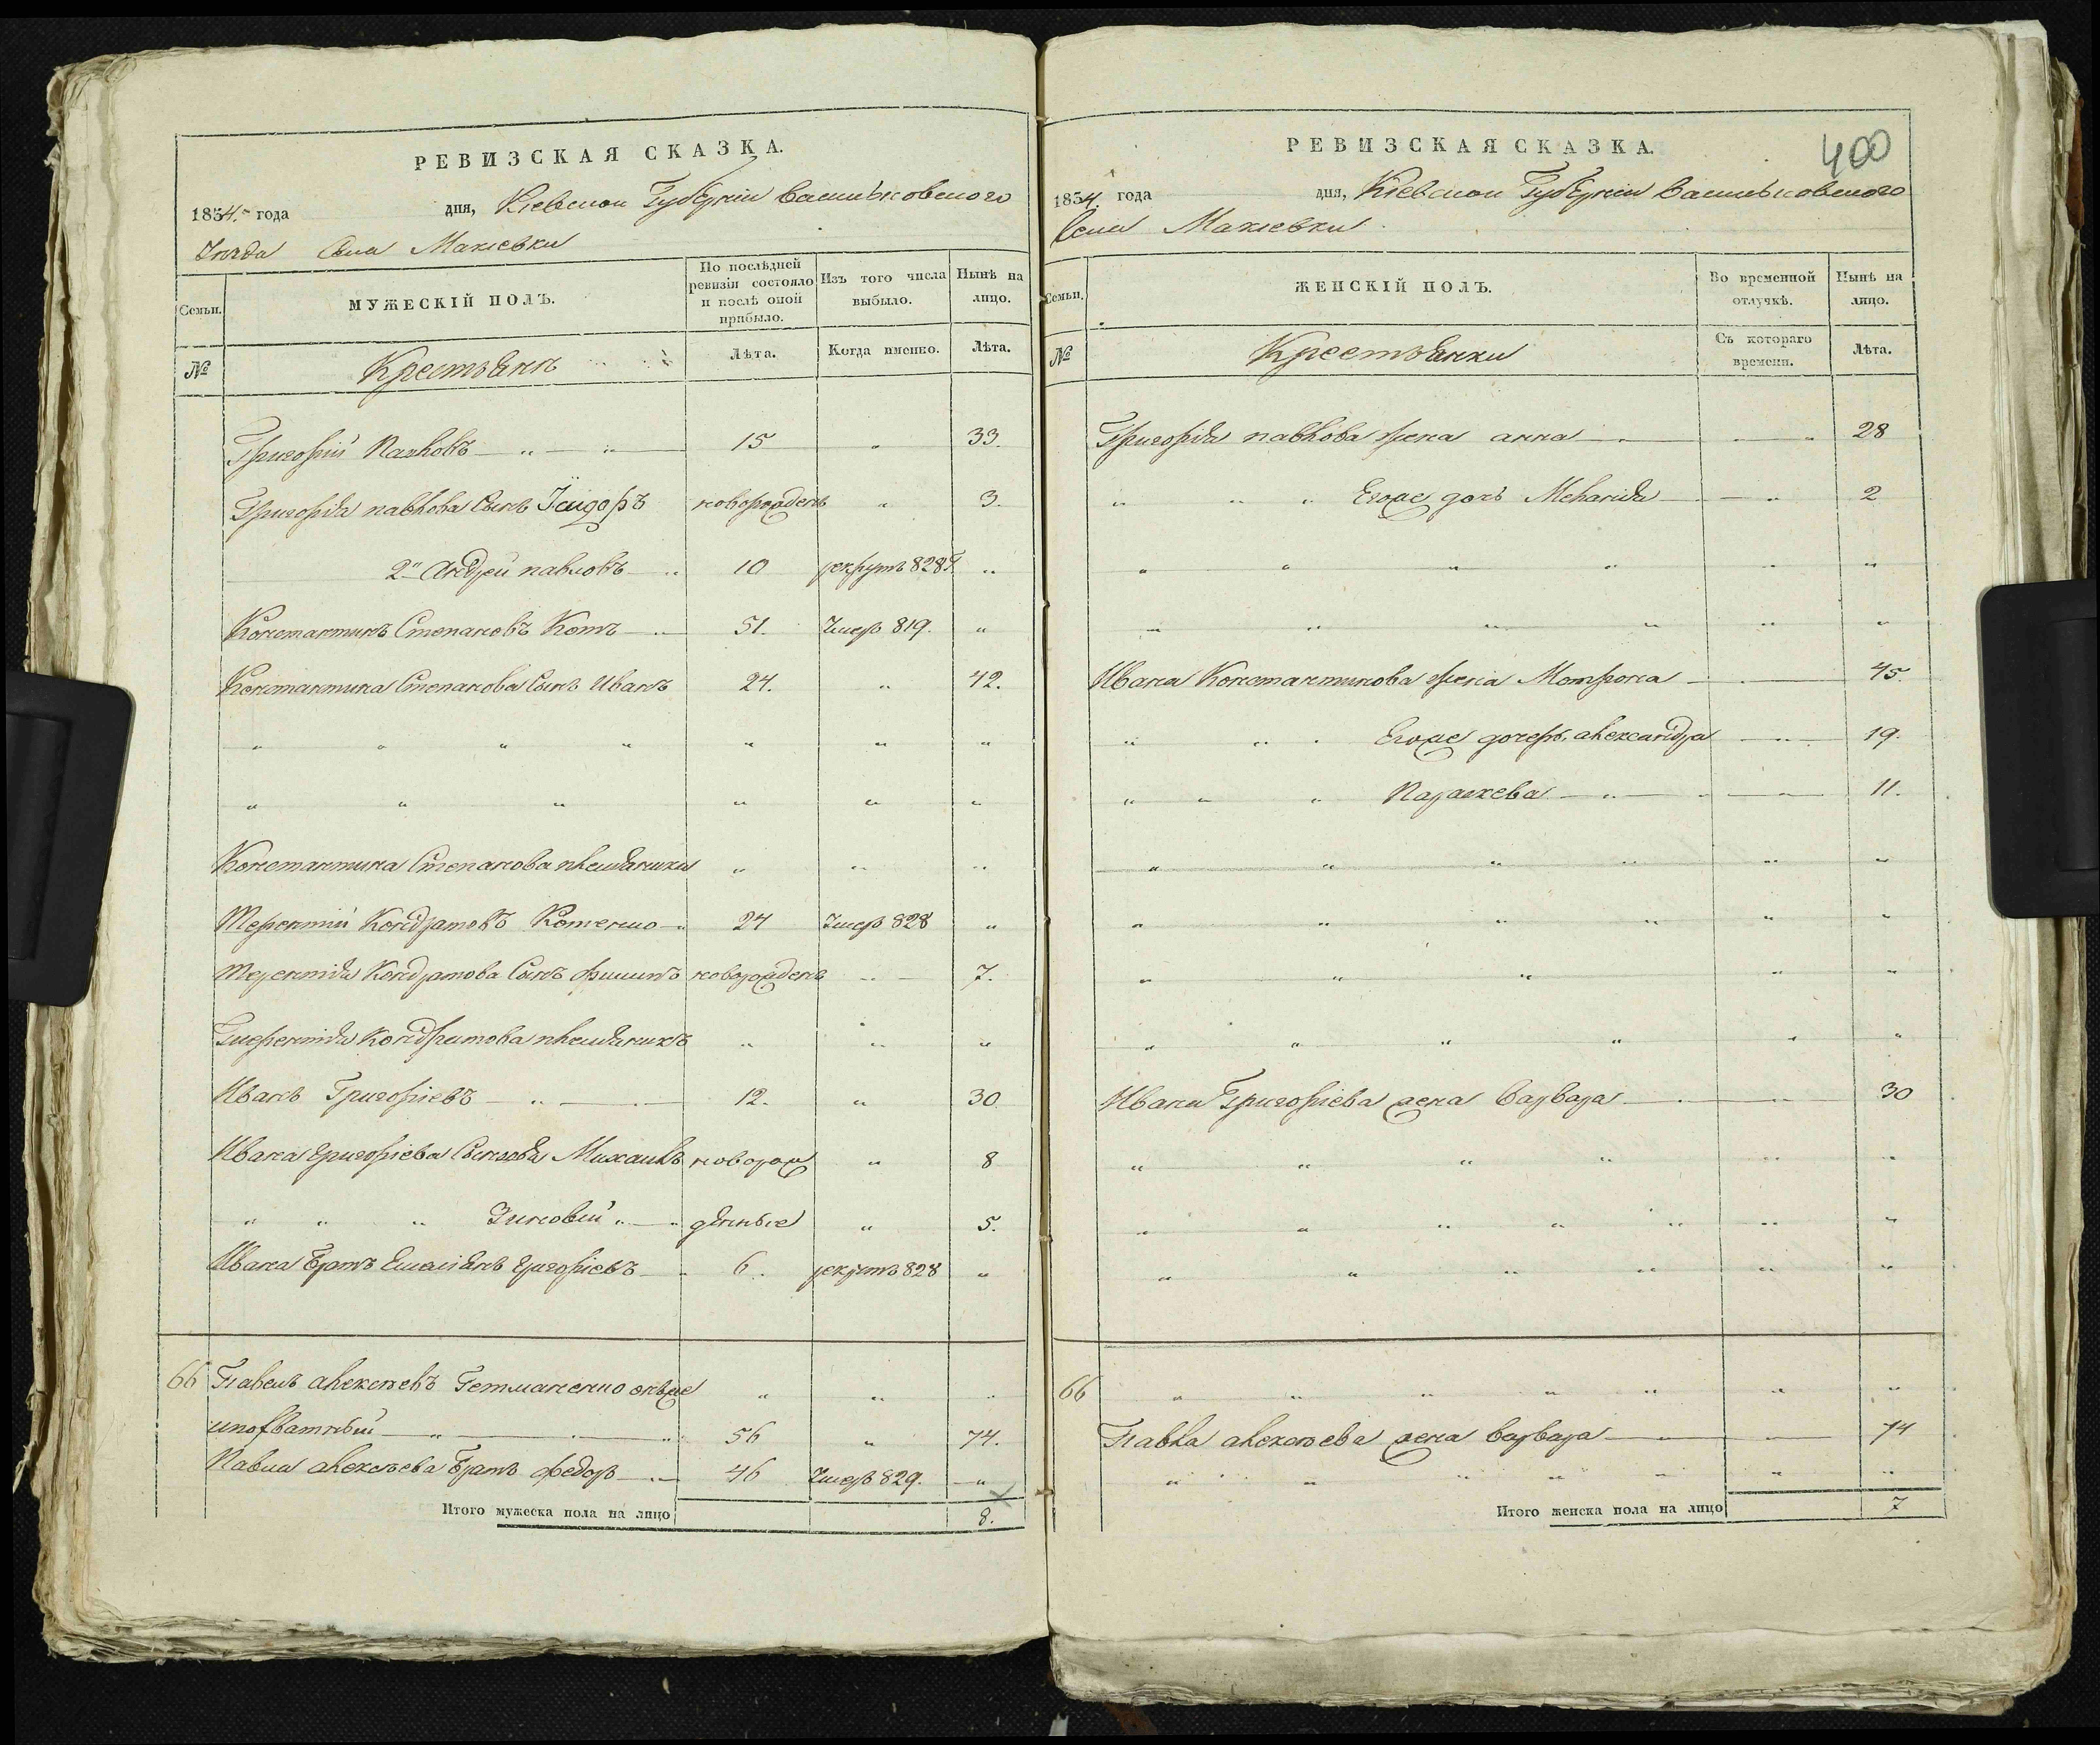 РЕВИЗСКАЯ СКАЗКА.
1834. года дня, Кіевской Губерніи Васильковского
Уезда Села Макіевки
Семьи.
МУЖЕСКІЙ ПОЛЪ.
По послѣдней ревизіи состояло и послѣ оной прибыло.
Изъ того числа выбыло.
Нынѣ на лицо.
№ Крестьяне Лѣта. Когда именно. Лѣта.
Григорій Павловъ 15 " 33.
Григорія павлова Сынъ Ісидоръ новорожденъ " 3.
2й Андрей павловъ 10 рекрутъ 828 г. "
Константинъ Степановъ Котъ 51. Умеръ 819. "
Константина Степанова Сынъ Иванъ 24. " 42.
" " " " " " "
" " " " " "
Константина Степанова племяники " " "
Терентий Кондратовъ Котенко 24 Умеръ 828 "
Терентия Кондратова Сынъ Филипъ новорожденъ " 7.
Терентия Кондратова племяникъ " " "
Иванъ Григоріевъ 12. " 30
Ивана Григоріева Сыновья Михаилъ новорож " 8
" " " Зиновей денные " 5.
Ивана Братъ Емеліянъ Григоріевъ 6. рекрутъ 828 "
66 Павелъ Алексѣевъ Гетманенко онъже " " "
" 56 " 74.
Павла Алексѣева Братъ Федоръ 46 Умеръ 829. "
Итого мужеска пола на лицо 8.
РЕВИЗСКАЯ СКАЗКА.
400
1834. года дня, Кіевской Губерніи Васильковского
Села Макіевки
Семьи.
ЖЕНСКІЙ ПОЛЪ.
Во временной отлучкѣ.
Нынѣ на лицо.
№ Крестьянки Съ котораго времени. Лѣта.
Григорія павлова жена анна " 28
" " " Егоже дочь Меланія " 2
" " " " " "
" " " " " "
Ивана Константинова жена Мотрона 45
" " " Егоже дочерь александра " 19.
" " " Параскева " 11.
" " " " " "
" " " " " "
" " " " "
" " " " " "
Ивана Григоріева жена варвара 30
" " " " " "
" " " " " " "
" " " " " "
66 " " " " " " "
Павла алексѣева жена варвара 74
" " " " " " "
Итого женска пола на лицо 7